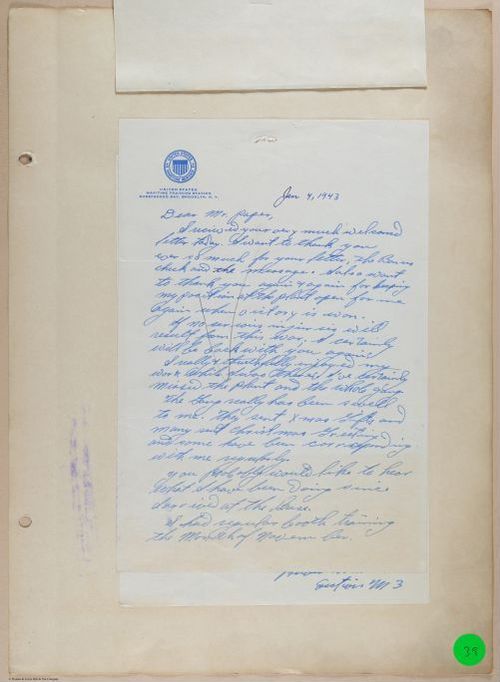 UNITED STATES
MARITIME TRAINING STATION
SHEEPSHEAD BAY, BROOKLYN, N. Y.
Jan 4, 1943
Dear Mr.
I received your very much welcomed
letter today. I want to thank you
ever so much for your letter, the Bonus
check and the message. I also want
to thank you again & again for keeping
my position at the plant open for me
again when victory is won.
If no serious injuries will
result from this War, I certainly
will be back with you again.
I really & truthfully enjoyed my
work while being there. I've certainly
missed the plant and the whole gang.
The gang really has been swell
to me. They sent Xmas Gifts and
many sent Christmas Greetings
and some have been corresponding
with me regularly.
You probably would like to hear
what I have been doing since
I arrived at the Base.
I had regular booth training
the Month of November.
Section M 3
39